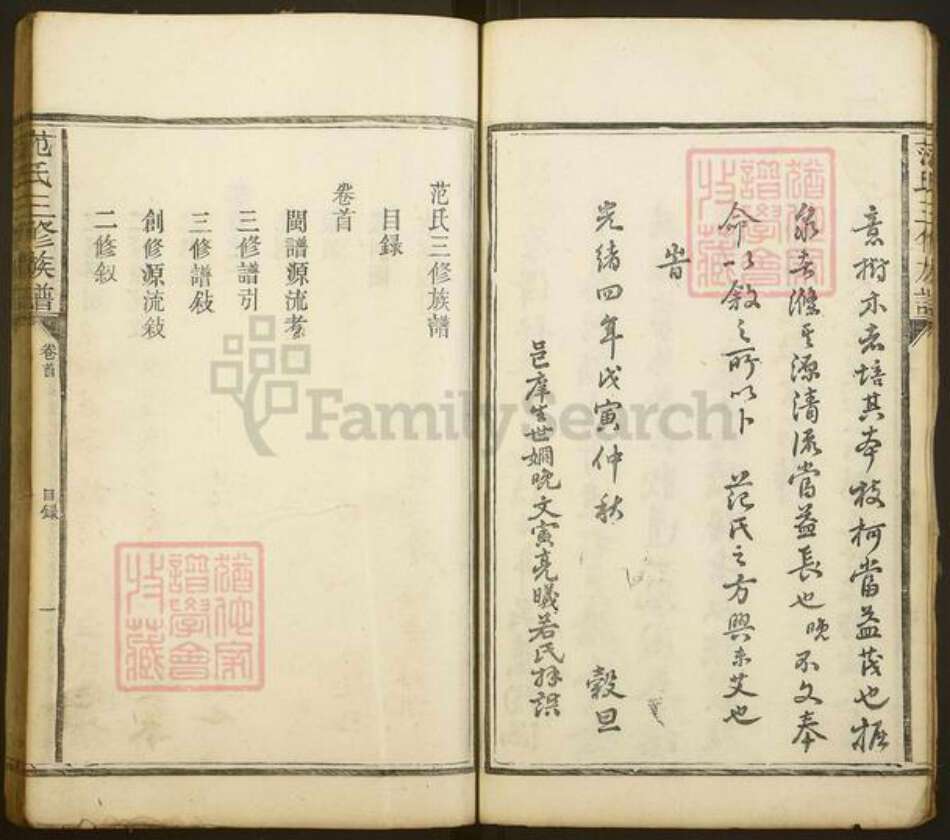 意樹木者培其本枝柯當益茂也掘
泉者滌其源清流當益長也晚不文奉
命以敘之所以卜 范氏之方興未艾也
皆
光緒四年戊寅仲秋 穀旦
邑庠生世姻晚文寅亮曦若氏拜譔
范氏三修族譜
范氏三修族譜
目録
卷首
閩譜源流考
三修譜引
三修譜敍
創修源流敍
二修叙
范氏三修族譜
卷首
目録
一
猶他家譜學會收藏
猶他家譜學會收藏
FamilySearch